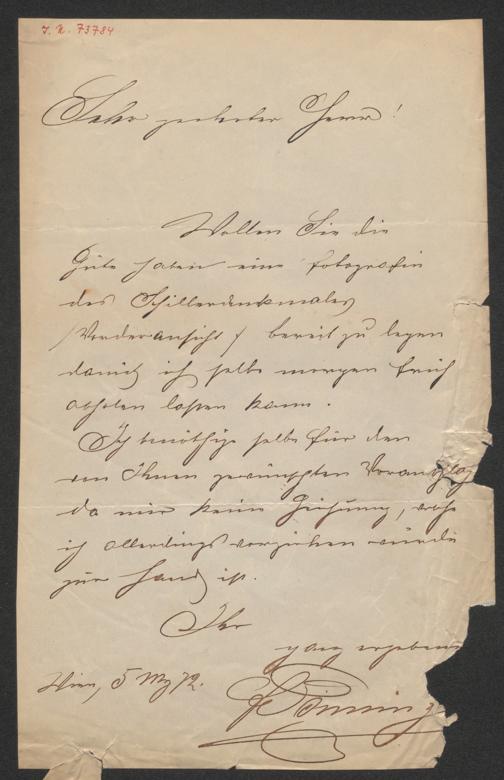 I. N. 73784
Sehr geehrter Herr!
Wollen Sie die
Güte haben eine Fotografie
des Schillerdenkmales
/Vorderansicht/ bereit zu legen
damit ich selbe morgen früh
abholen lassen kann.
Ich benöthige selbe für den
von Ihnen gewünschten Voranschlag
da mir keine Zeichnung, welche
ich allerdings vorziehen würde
zur Hand ist.
Ihr
ganz ergebens
Wien, 5 Mz 72.